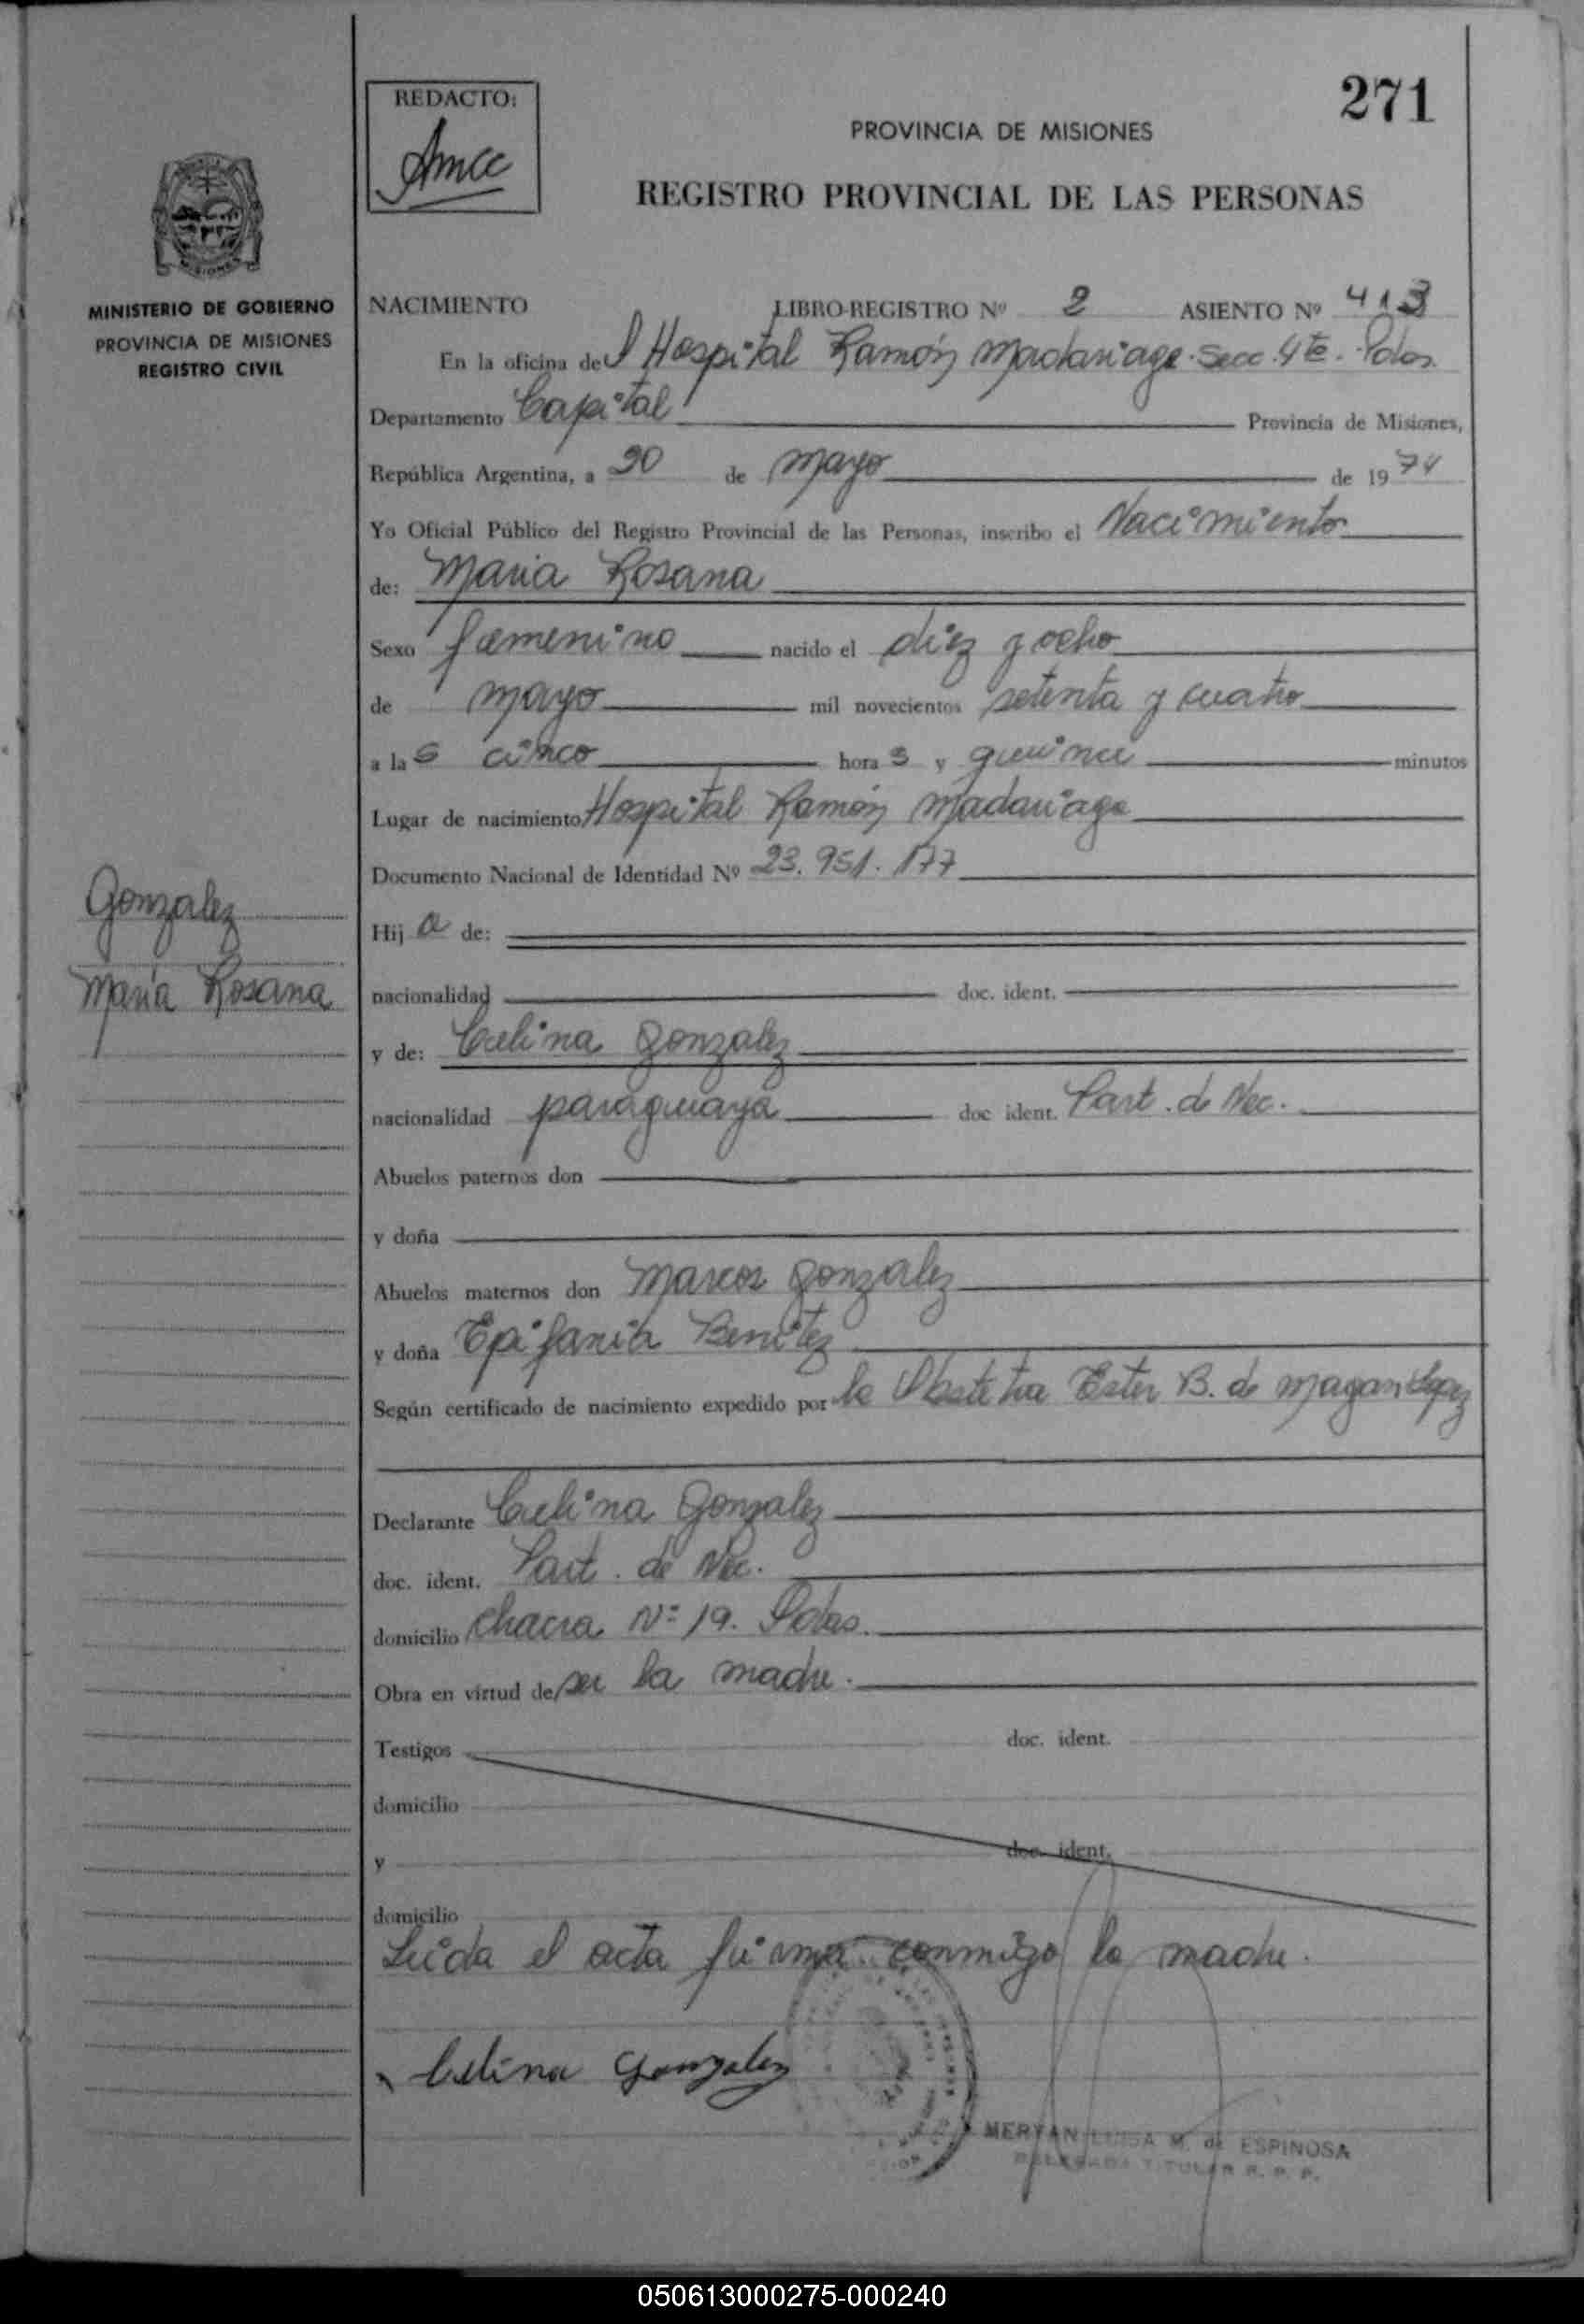 271
REDACTO:
Amce
PROVINCIA DE MISIONES
REGISTRO PROVINCIAL DE LAS PERSONAS
MISIONES
MINISTERIO DE GOBIERNO
PROVINCIA DE MISIONES
REGISTRO CIVIL
NACIMIENTO LIBRO-REGISTRO Nº 2 ASIENTO Nº 413
En la oficina del Hospital Ramón Madariaga. Secc. 4te. Pdas.
Departamento Capital Provincia de Misiones,
República Argentina, a 20 de mayo de 1974
Yo Oficial Público del Registro Provincial de las Personas, inscribo el Nacimiento
de: Maria Rosana
Sexo femenino nacido el diez y ocho
de mayo mil novecientos setenta y cuatro
a las cinco horas y quince minutos
Lugar de nacimiento Hospital Ramón Madariaga
Documento Nacional de Identidad Nº 23.951.177
Gonzalez
Maria Rosana
Hija de:
nacionalidad doc. ident.
y de: Celina Gonzalez
nacionalidad paraguaya doc ident. Part. de Nac.
Abuelos paternos don
y doña
Abuelos maternos don Marcos Gonzalez
y doña Epifania Benitez
Según certificado de nacimiento expedido por la Obstetra Ester B. de
Declarante Celina Gonzalez
doc. ident. Part. de Nac.
domicilio Chacra Nº 19. Pdas.
Obra en virtud de ser la madre.
Testigos doc. ident.
domicilio
y doc. ident.
domicilio
Leída el acta firma conmigo la madre.
Celina Gonzalez
MERYAN LUISA M. de ESPINOSA
DELEGADA TITULAR R. P. P.
050613000275-000240